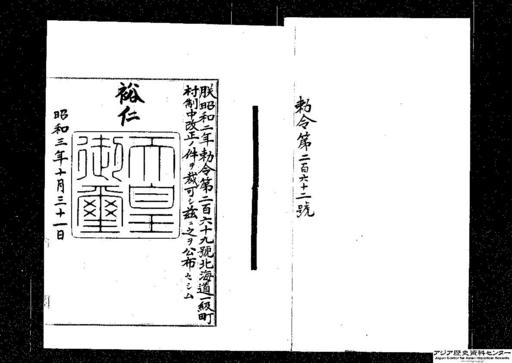 勅令第二百六十二號
朕昭和二年勅令第二百六十九號北海道一級町
村制中改正ノ件ヲ裁可シ茲ニ之ヲ公布セシム
裕仁
天皇
御璽
昭和三年十月三十一日
アジア歴史資料センター
Japan Center for Asian Historical Records